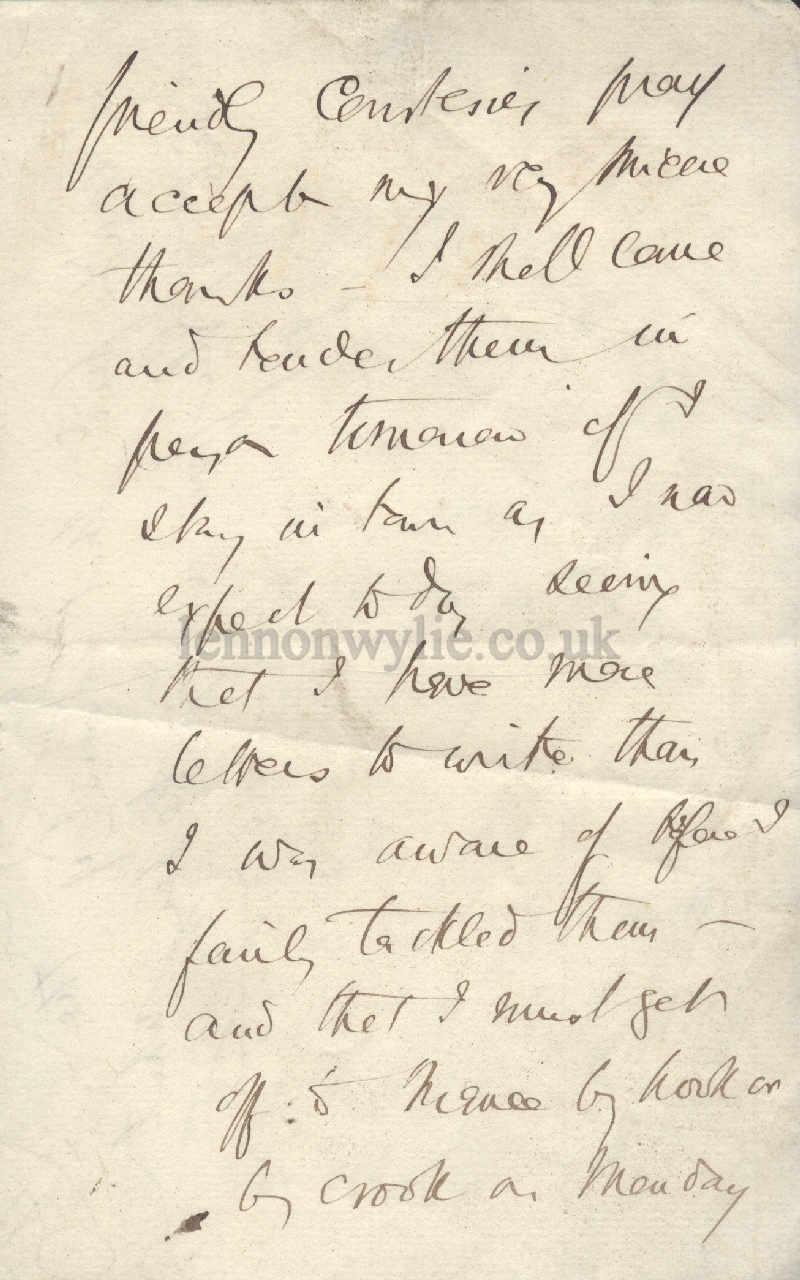 friendly Courtesies, pray
accept my very sincere
thanks – I shall come
and tender them in
person tomorrow if I
stay in town as I now
expect to day seeing
that I have more
letters to write than
I was aware of before I
fairly tackled them –
and that I must get
off to by hook or
by crook on Monday
lennonwylie.co.uk